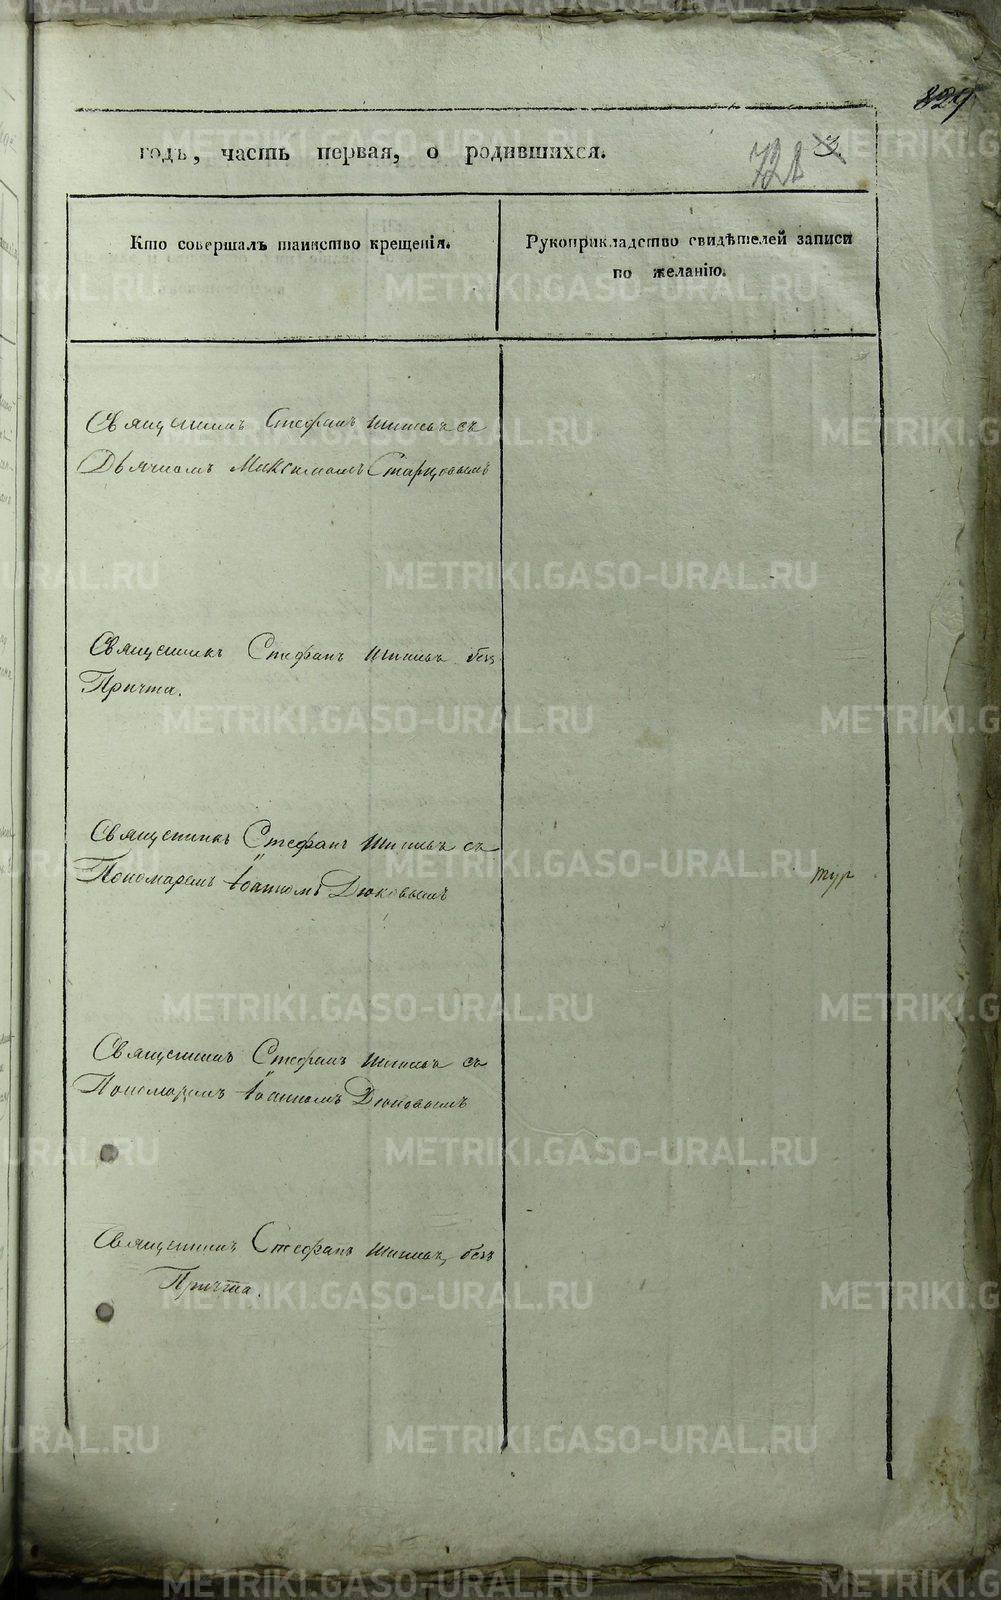 829
годъ, часть первая, о родившихся.
728
3
Кто совершалъ таинство крещенія.
Рукоприкладство свидѣтелей записи
по желанію.
Священникъ Стефанъ Шишевъ съ
Дьячкомъ Максимомъ Старцовымъ
Священникъ Стефанъ безъ
Причта.
Священникъ Стефанъ съ
Пономаремъ Іоанномъ Дюковымъ
тур
Священникъ Стефанъ съ
Пономаремъ Іоанномъ Дюковымъ
Священникъ Стефанъ безъ
Причта.
METRIKI.GASO-URAL.RU